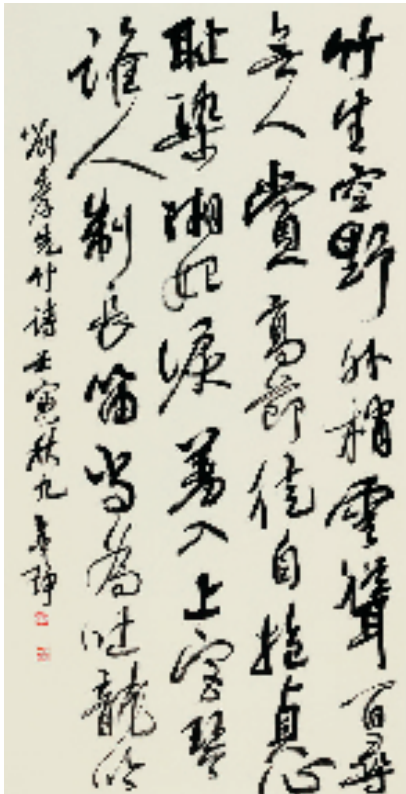 竹生空野外梢雲聳百尋
無人賞高節徒自抱貞心
恥染湘妃淚羞入上宮琴
誰人制長笛當為吐龍吟
劉孝先竹詩壬寅秋九